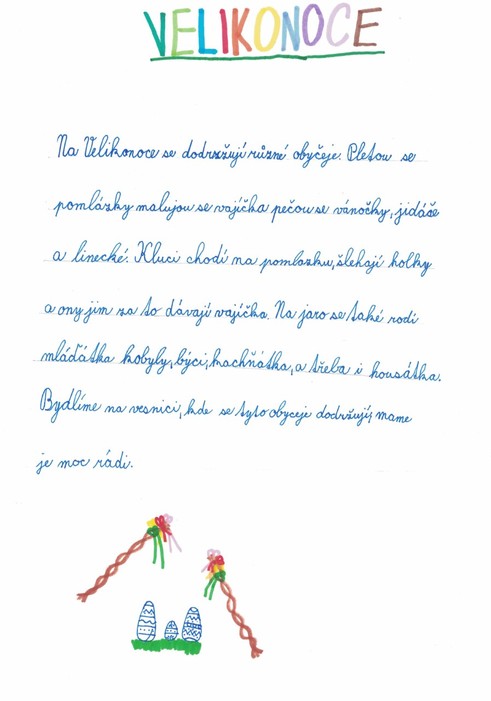 VELIKONOCE
Na Velikonoce se dodrzžují různé obyčeje. Pletou se
pomlázky malujou se vajíčka pečou se vánočky, jidáše
a linecké. Kluci chodí na pomlazku, šlehají holky
a ony jim za to dávají vajíčka. Na jaro se také rodi
mláďátka kobyly, býci, kachňátka, a třeba i housátka.
Bydlíme na vesnici, kde se tyto obyceje dodržují, mame
je moc rádi.